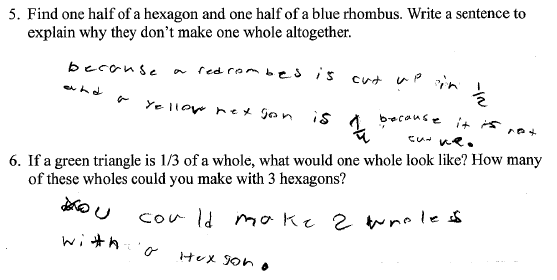 5. Find one half of a hexagon and one half of a blue rhombus. Write a sentence to
explain why they don't make one whole altogether.
because a red rombes is cut up in 1/2
and a Yellow hexgon is 1/4 because it is not
6. If a green triangle is 1/3 of a whole, what would one whole look like? How many
of these wholes could you make with 3 hexagons?
You could make 2 wholes
with a Hexgon.